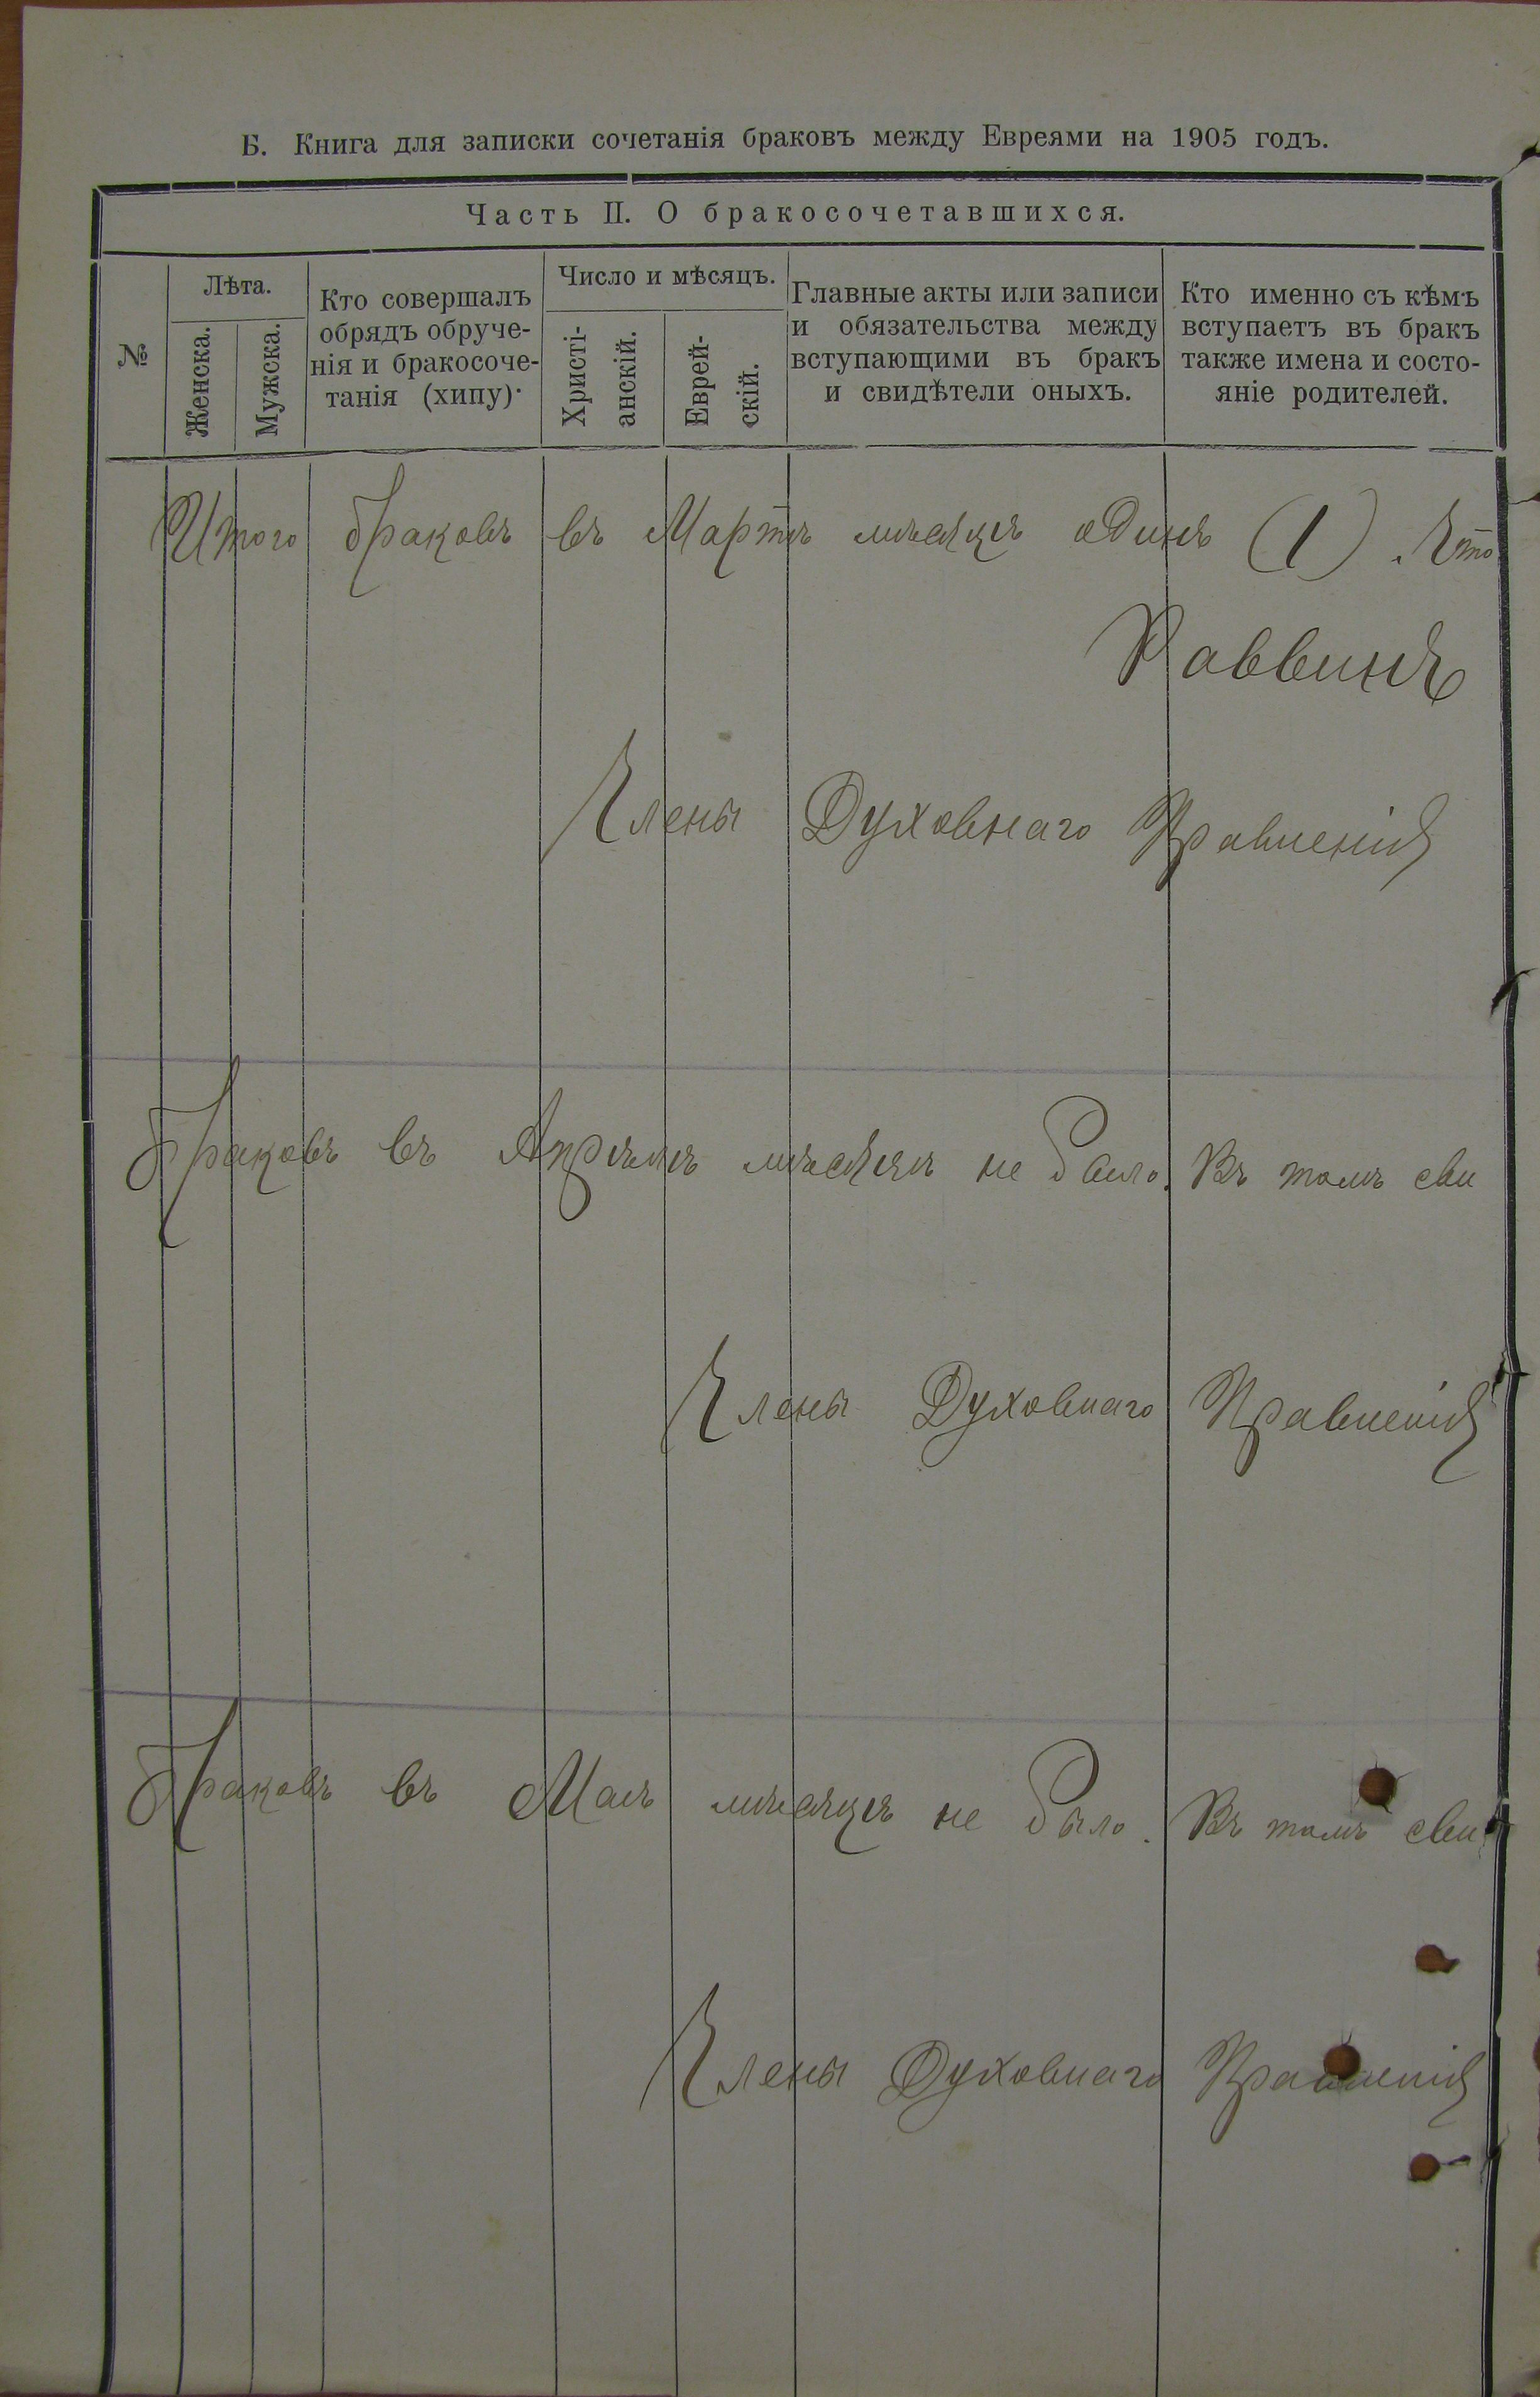 Б. Книга для записки сочетанія браковъ между Евреями на 1905 годъ.
Часть II. О бракосочетавшихся.
№
Лѣта.
Женска.
Мужска.
Кто совершалъ
обрядъ обруче-
нія и бракосоче-
танія (хипу).
Число и мѣсяцъ.
Христі-
анскій.
Еврей-
скій.
Главные акты или записи
и обязательства между
вступающими въ бракъ
и свидѣтели оныхъ.
Кто именно съ кѣмъ
вступаетъ въ бракъ
также имена и состо-
яніе родителей.
Итого браковъ въ Мартѣ мѣсяцѣ одинъ (1). Что
Раввинъ
Члены Духовнаго Правленія
Браковъ въ Апрѣлѣ мѣсяцѣ не было. Въ томъ сви
Члены Духовнаго Правленія
Браковъ въ Маѣ мѣсяцѣ не было. Въ томъ сви
Члены Духовнаго Правленія